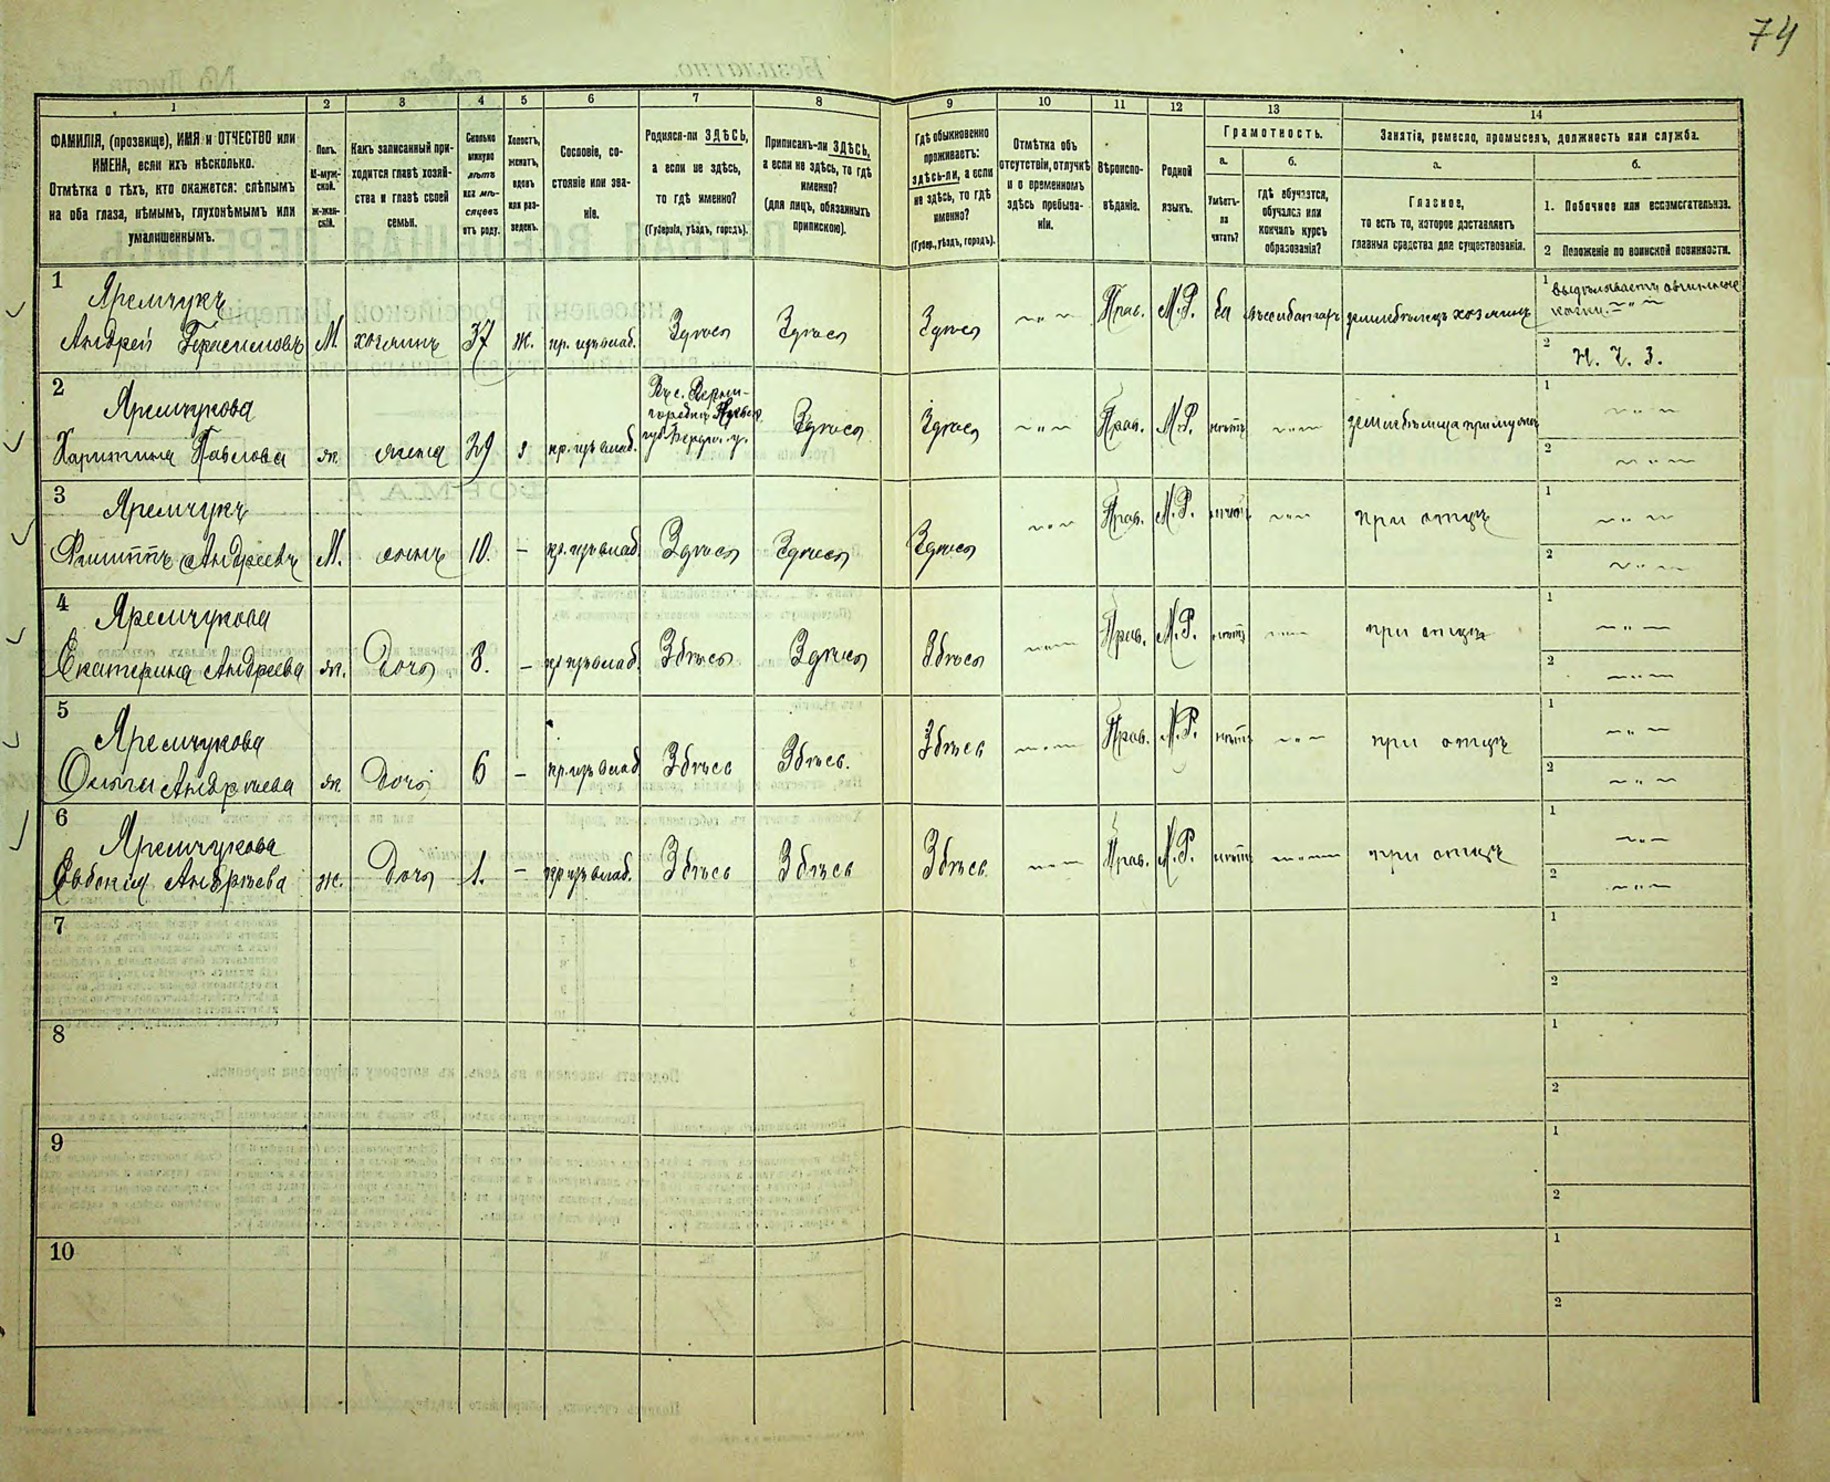 74
1
2
3
4
5
6
7
8
9
10
11
12
13
14
ФАМИЛІЯ, (прозвище), ИМЯ и ОТЧЕСТВО или
ИМЕНА, если ихъ нѣсколько.
Отмѣтка о тѣхъ, кто окажется: слѣпымъ
на оба глаза, нѣмымъ, глухонѣмымъ или
умалишеннымъ.
Полъ.
М-муж-
ской.
Ж-жен-
скій.
Какъ записанный при-
ходится главѣ хозяй-
ства и главѣ своей
семьи.
Сколько
минуло
лѣтъ
или мѣ-
сяцевъ
отъ роду.
Холостъ,
женатъ,
вдовъ
или раз-
веденъ.
Сословіе, со-
стояніе или зва-
ніе.
Родился-ли ЗДѢСЬ,
а если не здѣсь,
то гдѣ именно?
(Губернія, уѣздъ, городъ).
Приписанъ-ли ЗДѢСЬ,
а если не здѣсь, то гдѣ
именно?
(для лицъ, обязанныхъ
припискою).
Гдѣ обыкновенно
проживаетъ:
здѣсь-ли, а если
не здѣсь, то гдѣ
именно?
(Губер., уѣздъ, городъ).
Отмѣтка объ
отсутствіи, отлучкѣ
и о временномъ
здѣсь пребыва-
ніи.
Вѣроиспо-
вѣданіе.
Родной
языкъ.
Грамотность.
а.
Умѣетъ-
ли
читать?
б.
гдѣ обучается,
обучался или
кончилъ курсъ
образованія?
Занятіе, ремесло, промыселъ, должность или служба.
а.
Главное,
то есть то, которое доставляетъ
главныя средства для существованія.
б.
1. Побочное или вспомогательное.
2 Положеніе по воинской повинности.
1
Яремчукъ
Андрей Герасимовъ М хозяинъ 37 ж. кр. изъ влад. Здѣсь Здѣсь Здѣсь Прав. М.Р. земледѣлецъ хозяинъ
1
2 Н. Ч. З.
2
Яремчукова
Харитина Павлова ж. жена 29 з кр. изъ влад. Здѣсь Здѣсь Прав. М.Р. нѣтъ
1
2
3
Яремчукъ
Филиппъ Андреевъ М. сынъ 10. – кр. изъ влад. Здѣсь Здѣсь Здѣсь Прав. М.Р. нѣтъ при отцѣ
1
2
4
Яремчукова
Екатерина Андреева ж. дочь 8. – кр. изъ влад. Здѣсь Здѣсь Здѣсь Прав. М.Р. нѣтъ при отцѣ
1
2
5
Яремчукова
Ольга Андреева ж. дочь 6 – кр. изъ влад. Здѣсь Здѣсь. Здѣсь Прав. М.Р. нѣтъ при отцѣ
1
2
6
Яремчукова
Евдокія Андреева ж. дочь 1. – кр. изъ влад. Здѣсь Здѣсь Здѣсь Прав. М.Р. нѣтъ при отцѣ
1
2
7
1
2
8
1
2
9
1
2
10
1
2